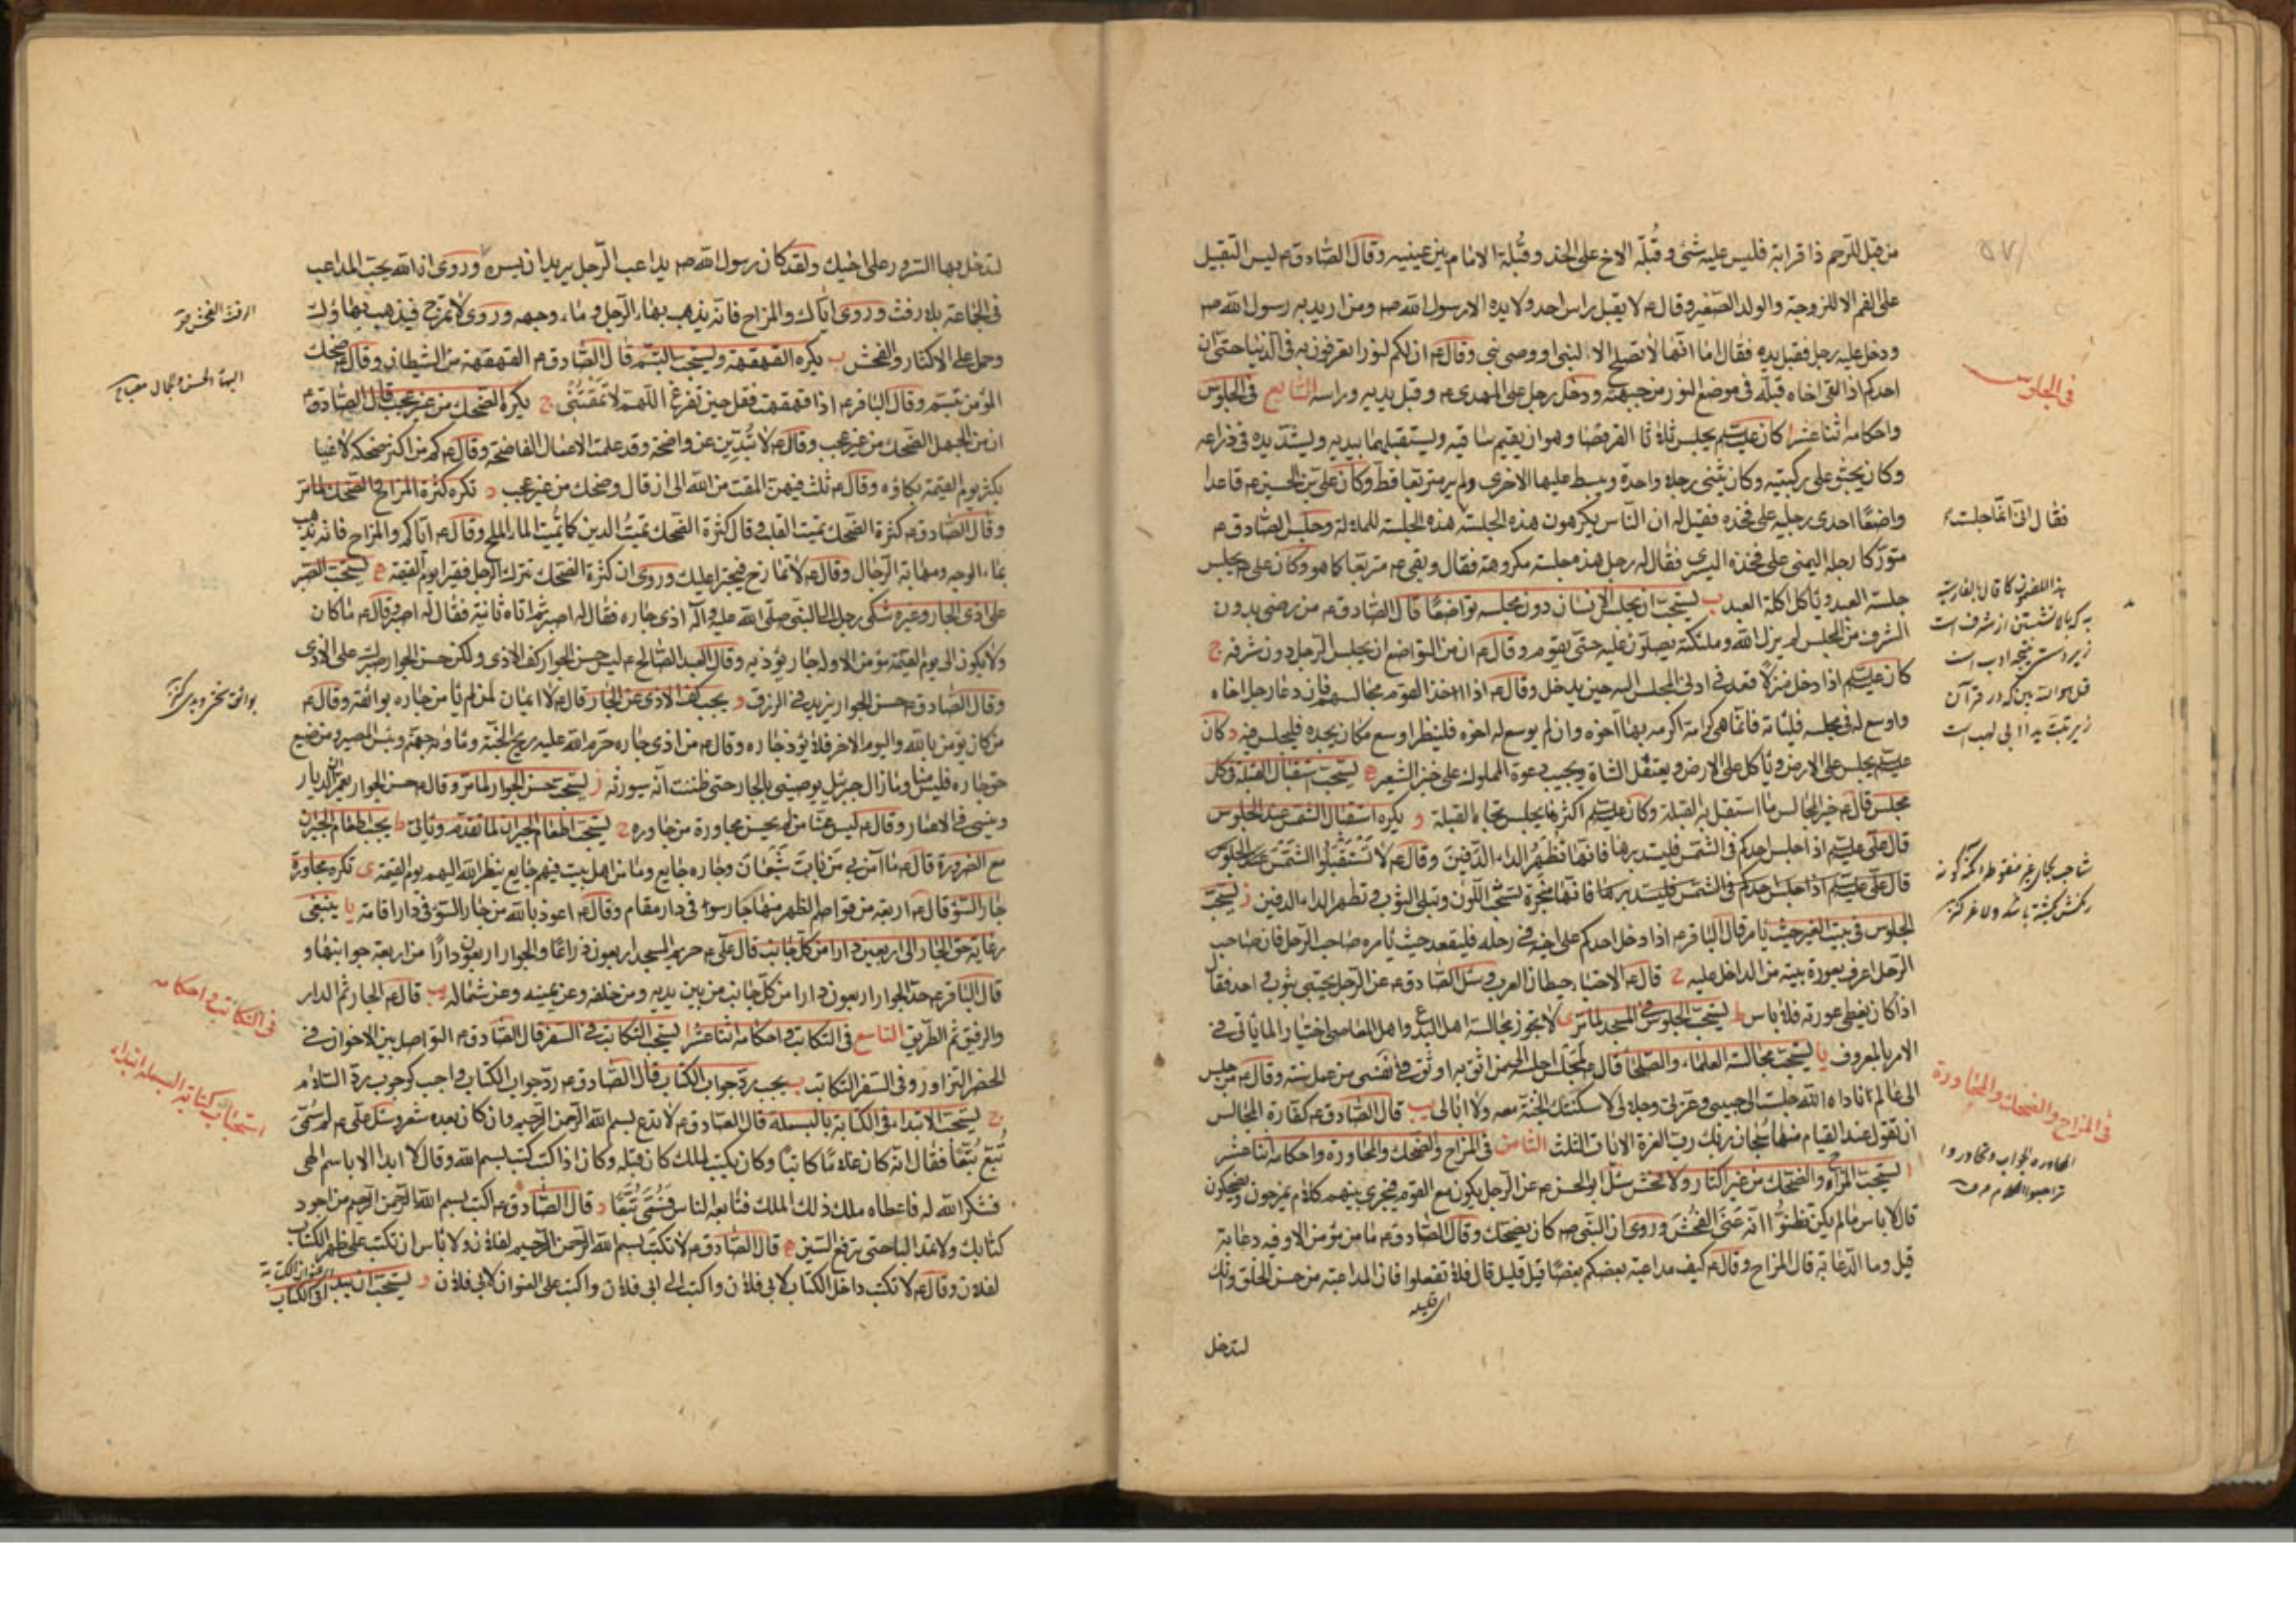 من قبل للرحم ذا قرابة فليس عليه شئ و قُبلة الاخ على الخد و قُبلة الامام بين عينيه وقال الصادق ع ليس التقبيل
على الفم الا للزوجة والولد الصغير وقال ع لا يقبل راس احد ولا يده الا رسول الله ص ومن اريد به رسول الله ص
ودخل عليه رجل فقبل يده فقال اما انها لا تصلح الا لنبي او وصي نبي وقال ع ان لكم لنورا تعرفون به في الدنيا حتى ان
احدكم اذا لقى اخاه قبله في موضع النور من جبهته ودخل رجل على المهدي ع وقبل يديه وراسه السابع في الجلوس
واحكامه اثنا عشر ا كان عليه السلام يجلس ثلاثا القرفصا وهو ان يقيم ساقيه ويستقبلهما بيديه ويشد يده في ذراعه
وكان يجثو على ركبتيه وكان يثنى رجلا واحدة ويبسط عليها الاخرى ولم ير متربعا قط وكان على بن الحسين ع قاعدا
واضعا احدى رجليه على فخذه فقيل له ان الناس يكرهون هذه الجلسة هذه الجلسة للملالة وجلس الصادق ع
متوركا رجله اليمنى على فخذه اليسرى فقال له رجل هذه جلسة مكروهة فقال وبقى ع متربعا كما هو وكان على ع يجلس
جلسة العبد وياكل اكلة العبد ب يستحب ان يجلس الانسان دون مجلسه تواضعا قال الصادق ع من رضى بدون
الشرف من المجلس لم يزل الله وملئكته يصلون عليه حتى يقوم وقال ع ان من التواضع ان يجلس الرجل دون شرفه ج
كان عليه السلام اذا دخل منزلا قعد في ادنى المجلس اليه حين يدخل وقال ع اذا اخذ القوم مجالسهم فان دعا رجل اخاه
واوسع له في مجلسه فلياته فانما هي كرامة اكرمه بها اخوه وان لم يوسع له اخوه فلينظر اوسع مكان يجده فليجلس فيه د كان
عليه السلام يجلس على الارض وياكل على الارض ويعتقل الشاة ويجيب دعوة المملوك على خبز الشعير ه يستحب استقبال القبلة في كل
مجلس قال ع خير المجالس ما استقبل به القبلة وكان عليه السلام اكثر ما يجلس تجاه القبلة و يكره استقبال الشمس عند الجلوس
قال على عليه السلام اذا جلس احدكم في الشمس فليستدبرها فانها تظهر الداء الدفين وقال ع لا تستقبلوا الشمس عند الجلوس
قال على عليه السلام اذا جلس احدكم في الشمس فليستدبرها فانها مبخرة تشحب اللون وتبلى الثوب وتظهر الداء الدفين ز يستحب
الجلوس في بيت الغير حيث يامر قال الباقر ع اذا دخل احدكم على اخيه في رحله فليقعد حيث يامره صاحب الرحل فان صاحب
الرحل اعرف بعورة بيته من الداخل عليه ح قال ع الاحتباء حيطان العرب وسئل الصادق ع عن الرجل يحتبي بثوب واحد فقال
اذا كان يغطى عورته فلا باس ط يستحب الجلوس في المسجد لما مر ى لا يجوز مجالسة اهل البدع واهل المعاصي اختيارا لما ياتى في
الامر بالمعروف يا يستحب مجالسة العلماء والصلحاء قال ع لمجلس اجلس اليه من اثق به اوثق في نفسي من عمل سنة وقال ع من جلس
الى عالم ناداه الله جلست الى حبيبي وعزتي وجلالي لاسكننك الجنة معه ولا ابالى يب قال الصادق ع كفارة المجالس
ان تقول عند القيام منها سبحان ربك رب العزة الايات الثلث الثامن في المزاح والضحك والمجاورة واحكامه اثنا عشر
ا يستحب المزاح والضحك من غير اكثار ولا فحش سئل ابو الحسن ع عن الرجل يكون مع القوم فيجرى بينهم كلام يمزحون ويضحكون
قال لا باس ما لم يكن فظننت انه عنى الفحش وروى ان النبي ص كان يضحك وقال الصادق ع ما من مؤمن الا وفيه دعابة
قيل وما الدعابة قال المزاح وقال ع كيف مداعبة بعضكم بعضا قيل قليل قال فلا تفعلوا فان المداعبة من حسن الخلق وانك
لتدخل
في الجلوس
فقال انى انما جلست
به كه بالا نشستن از شرف است
زير دست نتيجه ادب است
قل هو الله بين كه در قرآن
زير تبت يدا ابى لهب است
في المزاح والضحك والمجاورة
لتدخل بها السرور على اخيك ولقد كان رسول الله ص يداعب الرجل يريد ان يسره وروى ان الله يحب المداعب
في الجماعة بلا رفث وروى اياك والمزاح فانه يذهب بهاء الرجل وماء وجهه وروى لا تمزح فيذهب بهاؤك
وحمل على الاكثار والفحش ب يكره القهقهة ويستحب التبسم قال الصادق ع القهقهة من الشيطان وقال ع ضحك
المؤمن تبسم وقال الباقر ع اذا قهقهت فقل حين تفرغ اللهم لا تمقتنى ج يكره الضحك من غير عجب قال الصادق ع
ان من الجهل الضحك من غير عجب وقال ع لا تبدين عن واضحة وقد عملت الاعمال الفاضحة وقال ع كم من اكثر ضحكه لاعبا
يكثر يوم القيمة بكاؤه وقال ع ثلث فيهن المقت من الله الى ان قال وضحك من غير عجب د تكره كثرة المزاح والضحك لما مر
وقال الصادق ع كثرة الضحك تميت القلب وقال كثرة الضحك تميت الدين كما يميت الماء الملح وقال ع اياكم والمزاح فانه يذهب
بماء الوجه ومهابة الرجال وقال ع لا تمازح فيجترا عليك وروى ان كثرة الضحك تترك الرجل فقيرا يوم القيمة ه يستحب الصبر
على اذى الجار وغيره شكى رجل الى النبي صلى الله عليه وآله اذى جاره فقال له اصبر ثم اتاه ثانية فقال له اصبر وقال ع ما كان
ولا يكون الى يوم القيمة مؤمن الا وله جار يؤذيه وقال العبد الصالح ع ليس حسن الجوار كف الاذى ولكن حسن الجوار صبرك على الاذى
وقال الصادق ع حسن الجوار يزيد في الرزق و يجب كف الاذى عن الجار قال ع لا ايمان لمن لم يامن جاره بوائقه وقال ع
من كان يؤمن بالله واليوم الاخر فلا يؤذ جاره وقال ع من اذى جاره حرم الله عليه ريح الجنة وماواه جهنم وبئس المصير ومن ضيع
حق جاره فليس منا وما زال جبرئيل يوصيني بالجار حتى ظننت انه سيورثه ز يستحب حسن الجوار لما مر وقال ع حسن الجوار يعمر الديار
وينسى في الاعمار وقال ع ليس منا من لم يحسن مجاورة من جاوره ح يستحب اطعام الجيران لما تقدم وياتي ط يجب اطعام الجيران
مع الضرورة قال ع ما آمن بي من بات شبعان وجاره جايع وما من اهل بيت فيهم جايع ينظر الله اليهم يوم القيمة ى تكره مجاورة
جار السوء قال ع اربعة من قواصم الظهر منها جار سوء في دار مقام وقال ع اعوذ بالله من جار السوء في دار اقامة يا ينبغى
رعاية حق الجار الى اربعين دارا من كل جانب قال على ع حريم المسجد اربعون ذراعا والجوار اربعون دارا من اربعة جوانبها و
قال الباقر ع حد الجوار اربعون دارا من كل جانب من بين يديه ومن خلفه وعن يمينه وعن شماله يب قال ع الجار ثم الدار
والرفيق ثم الطريق التاسع في التكاتب واحكامه اثنا عشر ا يستحب التكاتب في السفر قال الصادق ع التواصل بين الاخوان في
الحضر التزاور وفي السفر التكاتب ب يجب رد جواب الكتاب قال الصادق ع رد جواب الكتاب واجب كوجوب رد السلام
ج يستحب الابتداء في الكتابة بالبسملة قال الصادق ع لا تدع بسم الله الرحمن الرحيم وان كان بعده شعر وسئل على ع لم سُمّى
تُبّع تُبّعا فقال انه كان غلاما كاتبا وكان يكتب لملك كان قبله وكان اذا كتب كتب بسم الله وقال لا ابدا الا باسم الهى
فشكر الله له فاعطاه ملك ذلك الملك فتابعه الناس فسمى تبعا د قال الصادق ع اكتب بسم الله الرحمن الرحيم من اجود
كتابك ولا تمد الباء حتى ترفع السين ه قال الصادق ع لا تكتب بسم الله الرحمن الرحيم لفلان ولا باس ان تكتب على ظهر الكتاب
لفلان وقال ع لا تكتب داخل الكتاب لابى فلان واكتب الى ابى فلان واكتب على العنوان لابى فلان و يستحب ان يبدا
في التكاتب واحكامه
استحباب كتابة البسملة ابتداء